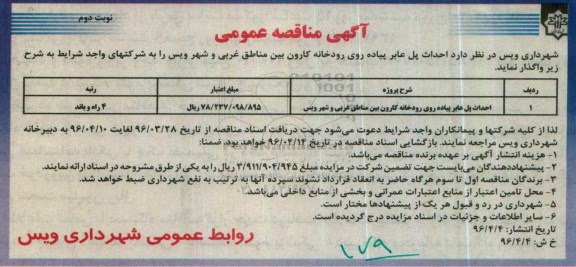 نوبت دوم
آگهی مناقصه عمومی
شهرداری ویس در نظر دارد احداث پل عابر پیاده روی رودخانه کارون بین مناطق غربی و شهر ویس را به شرکتهای واجد شرایط به شرح
زیر واگذار نماید.
ردیف شرح پروژه مبلغ اعتبار رتبه
۱ احداث پل عابر پیاده روی رودخانه کارون بین مناطق غربی و شهر ویس ۷۸/۲۳۷/۰۹۸/۸۹۵ ریال ۴ راه و باند
لذا از کلیه شرکتها و پیمانکاران واجد شرایط دعوت می‌شود جهت دریافت اسناد مناقصه از تاریخ ۹۶/۰۳/۲۸ لغایت ۹۶/۰۴/۱۰ به دبیرخانه
شهرداری ویس مراجعه نمایند. بازگشایی اسناد مناقصه در تاریخ ۹۶/۰۴/۱۴ خواهد بود. ضمنا:
۱- هزینه انتشار آگهی بر عهده برنده مناقصه می‌باشد.
۲- پیشنهاددهندگان می‌بایست جهت تضمین شرکت در مزایده مبلغ ۳/۹۱۱/۹۰۴/۹۴۵ ریال را به یکی از طرق مشروحه در اسناد ارائه نمایند.
۳- برندگان مناقصه اول تا سوم هرگاه حاضر به انعقاد قرارداد نشوند سپرده آنها به ترتیب به نفع شهرداری ضبط خواهد شد.
۴- محل تامین اعتبار از منابع اعتبارات عمرانی و بخشی از منابع داخلی می‌باشد.
۵- شهرداری در رد و قبول هر یک از پیشنهادها مختار است.
۶- سایر اطلاعات و جزئیات در اسناد مزایده درج گردیده است.
تاریخ انتشار: ۹۶/۴/۴
خ ش: ۹۶/۴/۴
روابط عمومی شهرداری ویس
۱۷۹